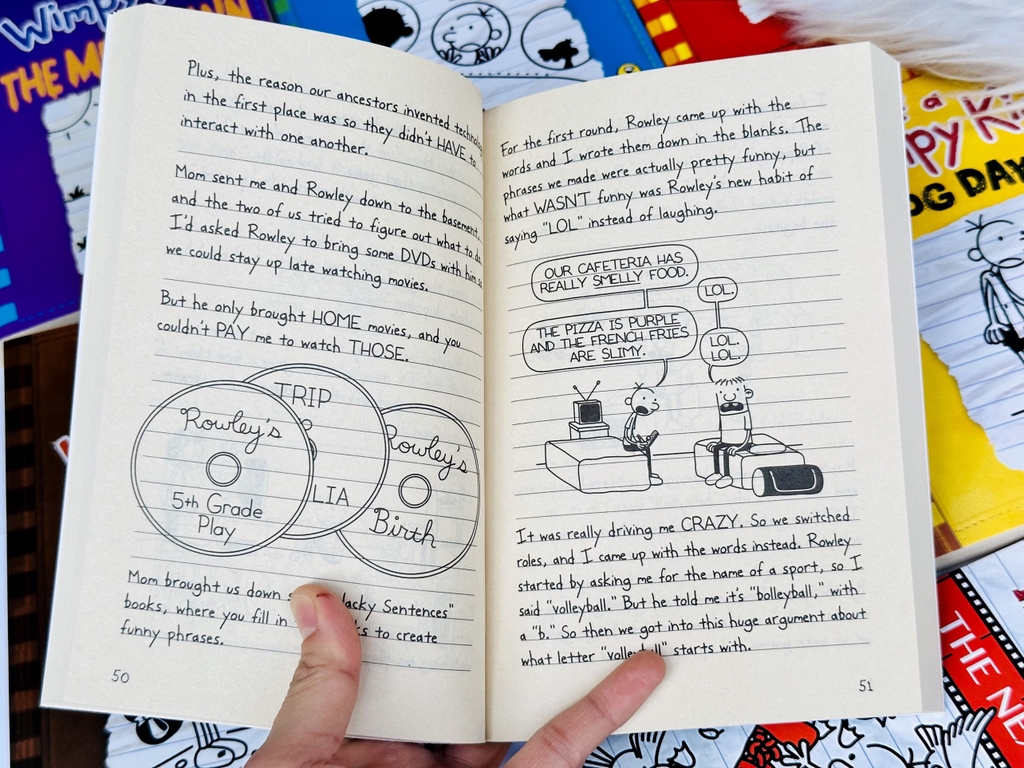 Wimpy
THE M
Plus, the reason our ancestors invented
in the first place was so they didn't HAVE to
interact with one another.
Mom sent me and Rowley down to the basement,
and the two of us tried to figure out what to
I'd asked Rowley to bring some DVDs with
we could stay up late watching movies.
But he only brought HOME movies, and you
couldn't PAY me to watch THOSE.
Rowley's
5th Grade
Play
TRIP
LIA
Rowley's
Birth
Mom brought us down
Sentences"
books, where you fill in
to create
funny phrases.
50
For the first round, Rowley came up with the
words and I wrote them down in the blanks. The
phrases we made were actually pretty funny, but
what WASN'T funny was Rowley's new habit of
saying "LOL" instead of laughing.
OUR CAFETERIA HAS
REALLY SMELLY FOOD.
LOL.
THE PIZZA IS PURPLE
AND THE FRENCH FRIES
ARE SLIMY.
LOL.
LOL.
It was really driving me CRAZY. So we switched
roles, and I came up with the words instead. Rowley
started by asking me for the name of a sport, so I
said "volleyball." But he told me it's "bolleyball," with
a "b." So then we got into this huge argument about
what letter "volleyball" starts with.
51
a
mpy Ki
OG DAY
THE NE